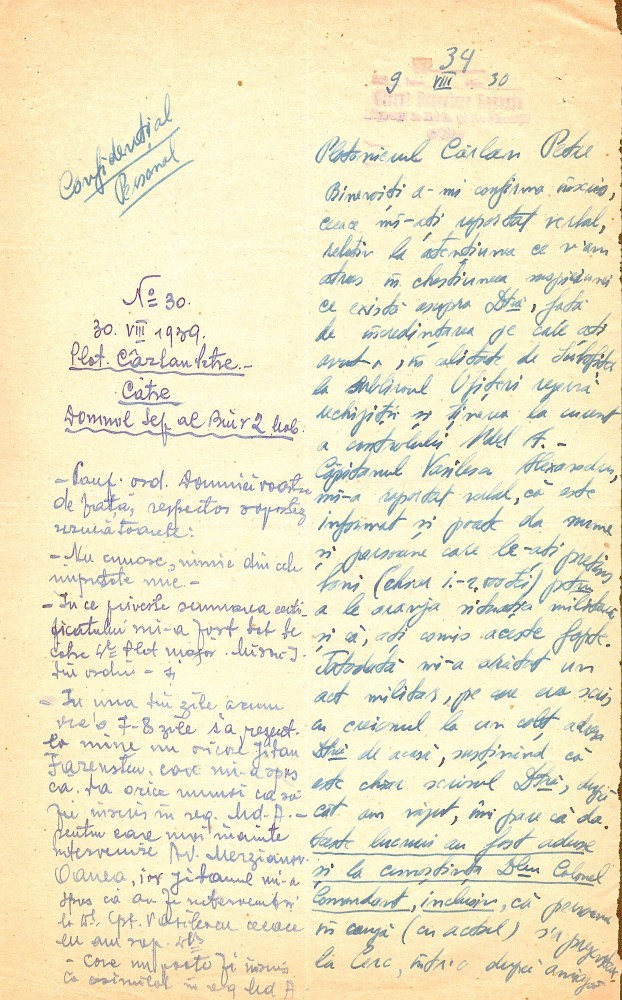 34
9 VIII 30
Confidențial
Personal
Plotonierul Cârlan Petre
Binevoiți a-mi confirma înscris,
ceace mi-ați raportat verbal,
relativ la atențiunea ce v'am
atras în chestiunea suspiciunei
ce există asupra Dtră, față
de încredințarea pe care ați
avut-o, în calitate de
la biroul Ofițeri rezervă
rechiziții și ținerea la curent
a controlului Mdl A.-
Căpitanul Vasilescu Alexandru,
mi-a raportat verbal, că este
informat și poate da nume
și persoane care le-ați pretins
bani (chiar ) ptru
a le aranja situația militară
și că, ați comis aceste fapte.
Totodată mi-a arătat un
act militar, pe care era scris
cu creionul la un colț adresa
Dtră de acasă, susținând că
este chiar scrisul Dtră, după
cât am văzut, îmi pare că da.
Aceste lucruri au fost aduse
și la cunoștința Dlui Colonel
Comandant, inclusiv, că persoana
în cauză (cu actul) s'a
la Cerc, într'o după amiază
No 30.
30. VIII 1939.
Plot. Cârlan Petre.-
Către
Domnul Șef al Biur 2 Mob.
- Conf. ord. Domniei voastre
de față, respectos raportez
următoarele:
- Nu cunosc, nimic din cele
imputate mie.-
- În ce privește semnarea certi-
ficatului mi-a fost dat de
către Plot major.
din ordin -
- În una din zile acum
vre'o 7-8 zile s'a prezent-
la mine un oricare Jitan
care mi-a spus
ca da orice numai ca să
fie înscris în reg. Md. A.-
pentru care mai înainte
intervenise Av.
Oancea, iar Jitanul mi-a
spus că ar fi intervenit
la Dl. Cpt. Vasilescu ceeace
eu am rap.
- Care nu poate fi înscris
în reg Md A